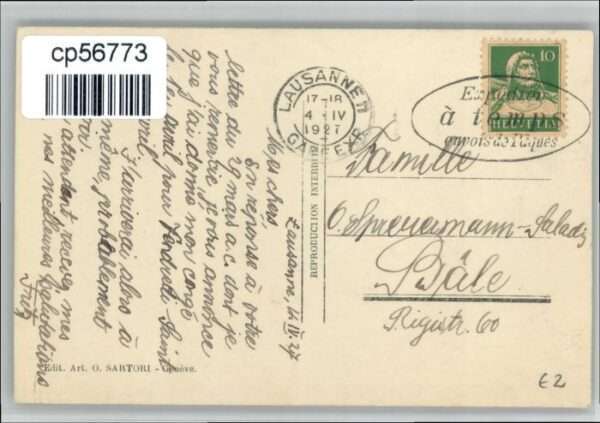 cp56773
LAUSANNE 1
17-18
4·IV
1927
GARE EXP.
Expédier
à temps
envois de Pâques
10
HELVETIA
Lausanne, 4.IV.27
Mes chers,
En réponse à votre
lettre du 29 mars a.c. dont je
vous remercie, je vous annonce
que j'ai donné mon congé
le 1er avril pour Vendredi Saint
avril
J'arriverai alors à
même, probablement
attendant, recevez mes
nos meilleures salutations
Fritz
REPRODUCTION INTERDITE
Famille
O. Spreuermann-Saladin
Bâle
Rigistr. 60
Edit. Art. O. SARTORI - Genève.
€2